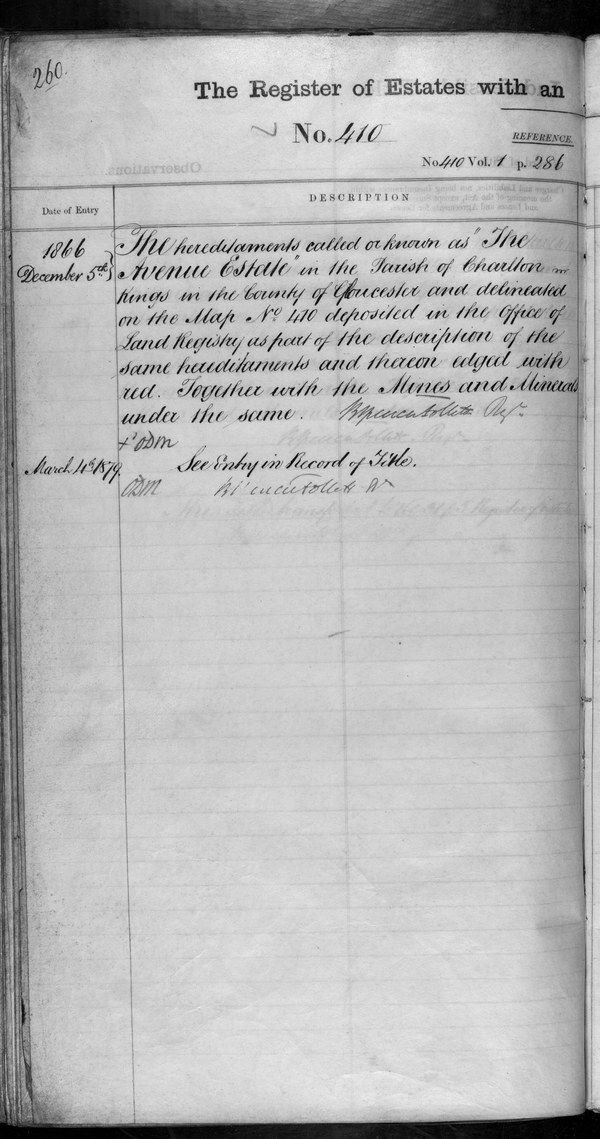 260.
The Register of Estates with an
No. 410
REFERENCE.
No 410 Vol. 1 p. 286
Date of Entry
DESCRIPTION
1866
December 5th
The hereditaments called or known as "The
Avenue Estate" in the Parish of Charlton
Kings in the County of Gloucester and delineated
on the Map No. 410 deposited in the Office of
Land Registry as part of the description of the
same hereditaments and thereon edged with
red. Together with the Mines and Minerals
under the same. Regr
ODM
March 4th 1879.
See Entry in Record of Title.
ODM